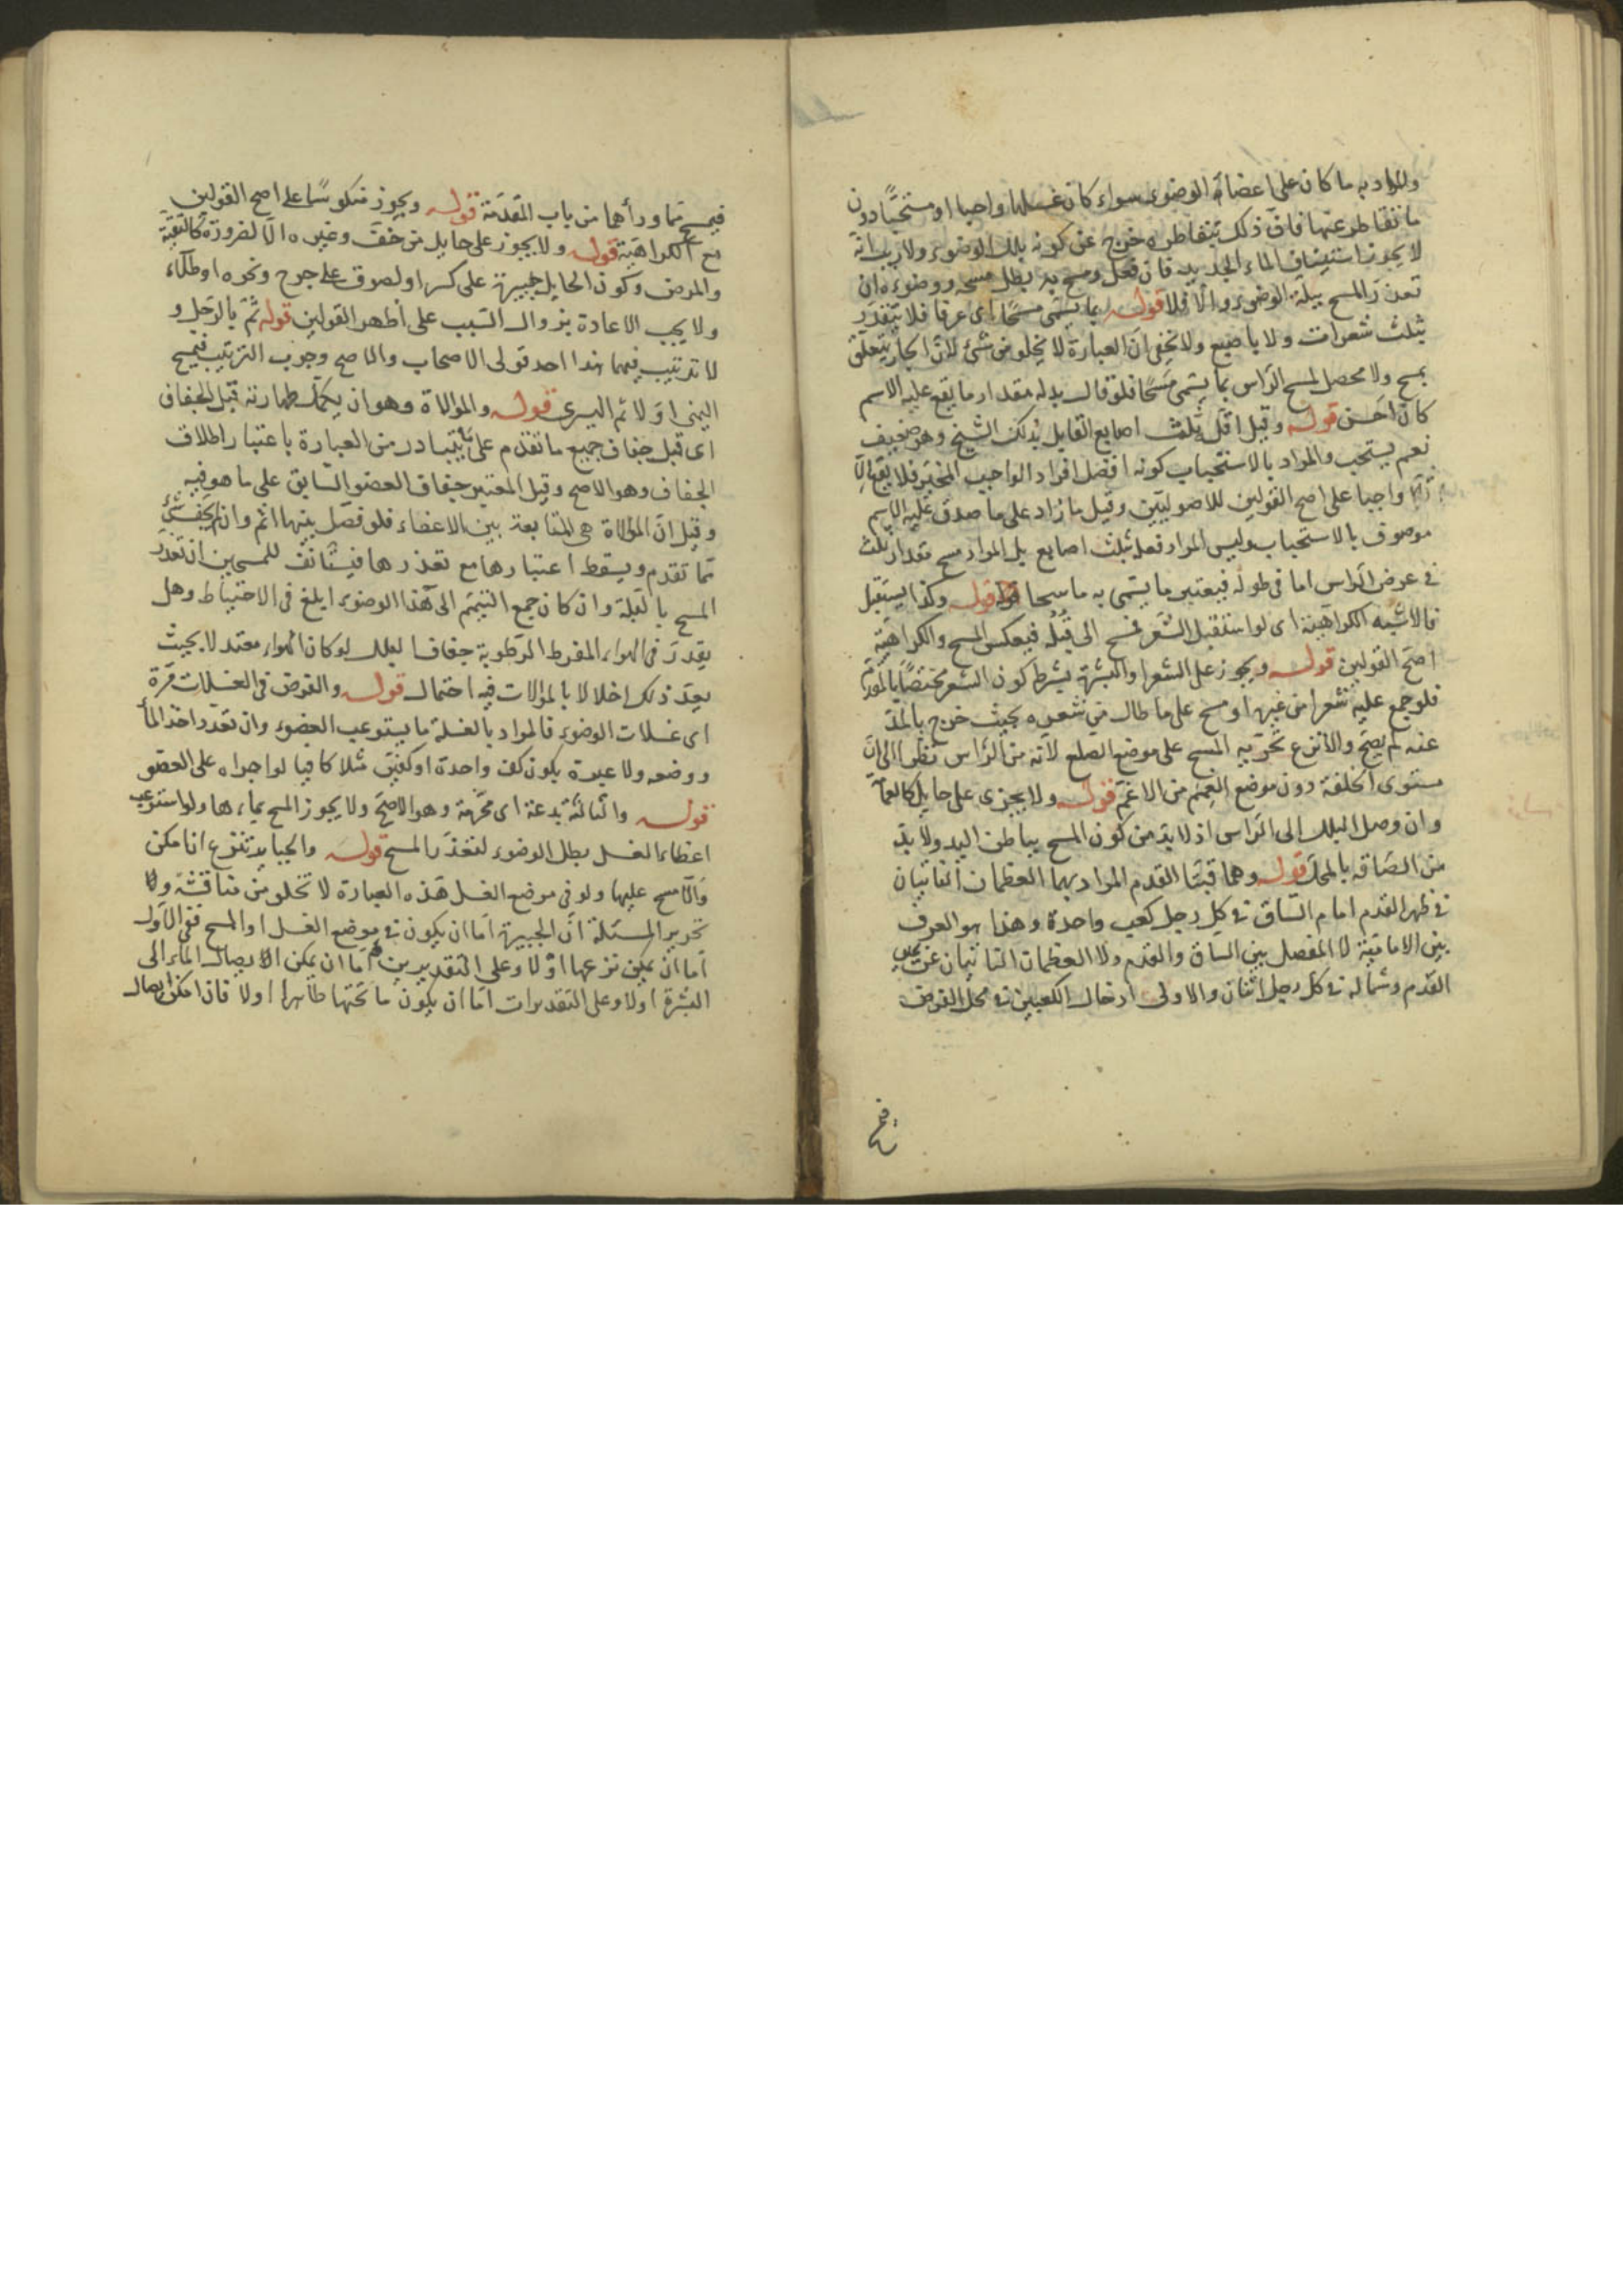 والمراد به ما كان على اعضاء الوضوء سواء كان غسلها واجبا او مستحبًا دون
ما تقاطر عنها فان ذلك بتقاطره خرج عن كونه بلل الوضوء ولا ريب انه
لا يجوز استيناف الماء الجديد فان فعل ومسح به بطل مسحه ووضوءه ان
تعذر المسح ببلة الوضوء والا فلا قوله بما يسمى مسحًا اى عرفا فلا يتقدر
بثلث شعرات ولا باصبع ولا يخفى ان العبارة لا يخلو من شئ لان الجار يتعلق
بمسح ولا محصل لمسح الراس بما يسمى مسحًا فلو قال بدله مقدار ما يقع عليه الاسم
كان احسن قوله وقيل اقله ثلث اصابع القايل بذلك الشيخ وهو ضعيف
نعم يستحب والمراد بالاستحباب كونه افضل افراد الواجب المخير فلا يقع الا
واجبا على اصح القولين للاصوليين وقيل ما زاد على ما صدق عليه الاسم
موصوف بالاستحباب وليس المراد فعله بثلث اصابع بل المراد مسح مقدار ثلث
فى عرض الراس اما فى طوله فيعتبر ما يسمى به ماسحا قوله وكذا يستقبل
فالاشبه الكراهية اى لو استقبل الشعر فمسح الى قبله فيعكس المسح والكراهية
اصح القولين قوله ويجوز على الشعر او البشرة بشرط كون الشعر مختصًا بالمقدم
فلو جمع عليه شعرا من غيره او مسح على ما طال من شعره بحيث خرج بالمد
عنه لم يصح والانزع تحريه المسح على موضع الصلع لانه من الراس نظرا الى ان
مستوى الخلقة دون موضع الغمم من الاغم قوله ولا يجزى على حايل كالعمامة
وان وصل البلل الى الراس اذ لا بد من كون المسح بباطن اليد ولا بد
من الصاقه بالمحل قوله وهما قبتا القدم المراد بهما العظمان الناتيان
فى ظهر القدم امام الساق فى كل رجل كعب واحدة وهذا هو المعروف
بين الامامية لا المفصل بين الساق والقدم ولا العظمان الناتيان عن يمين
القدم وشماله فى كل رجل اثنان والاولى ادخال الكعبين فى محل الفرض
فيمسح
فيمسح ما وراهما من باب المقدمة قوله ويجوز منكوسًا على اصح القولين
مع الكراهية قوله ولا يجوز على حايل من خف وغيره الا لضرورة كالتقية
والمرض وكون الحايل جبيرة على كسر او لصوق على جرح ونحوه او طلاء
ولا يجب الاعادة بزوال السبب على اظهر القولين قوله ثم بالرجل و
لا ترتيب فيهما هذا احد قولى الاصحاب والاصح وجوب الترتيب فيمسح
اليمنى اولا ثم اليسرى قوله والموالاة وهو ان يكمل طهارته قبل الجفاف
اى قبل جفاف جميع ما تقدم على ما يتبادر من العبارة باعتبار اطلاق
الجفاف وهو الاصح وقيل المعتبر جفاف العضو السابق على ما هو فيه
وقيل ان الموالاة هى المتابعة بين الاعضاء فلو فصل بينها اثم وان لم يجف شئ
مما تقدم ويسقط اعتبارها مع تعذرها فيستانف للمسحين ان تعذر
المسح بالبلة وان كان جمع التيمم الى هذا الوضوء ابلغ فى الاحتياط وهل
يقدر فى الهواء المفرط الرطوبة جفافا لبلل لو كان الهواء معتدلا بحيث
يعد ذلك اخلالا بالموالات فيه احتمال قوله والفرض فى الغسلات مرة
اى غسلات الوضوء فالمراد بالغسلة ما يستوعب العضو وان تعدد اخذ الماء
ووضعه ولا عبرة بكون كف واحدة او كفين مثلا كافيا لو اجراه على العضو
قوله والثالثة بدعة اى محرمة وهو الاصح ولا يجوز المسح بماءها ولو استوعب
اعضاء الغسل بطل الوضوء لتعذر المسح قوله والجباير تنزع ان امكن
والا مسح عليها ولو فى موضع الغسل هذه العبارة لا تخلو من مناقشة
تحرير المسئلة ان الجبيرة اما ان يكون فى موضع الغسل او المسح ففى الاول
اما ان يمكن نزعها اولا وعلى التقديرين اما ان يمكن ايصال الماء الى
البشرة اولا وعلى التقديرات اما ان يكون ما تحتها طاهرا اولا فان امكن ايصال